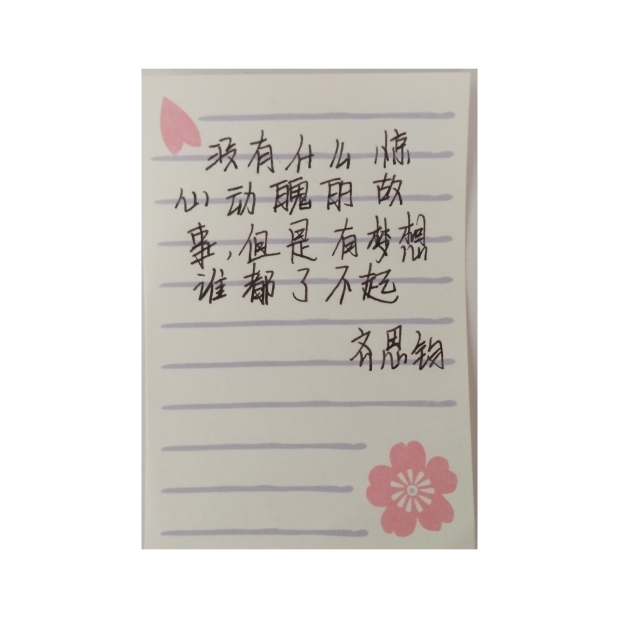 没有什么惊
心动魄的故
事,但是有梦想
谁都了不起
齐思钧